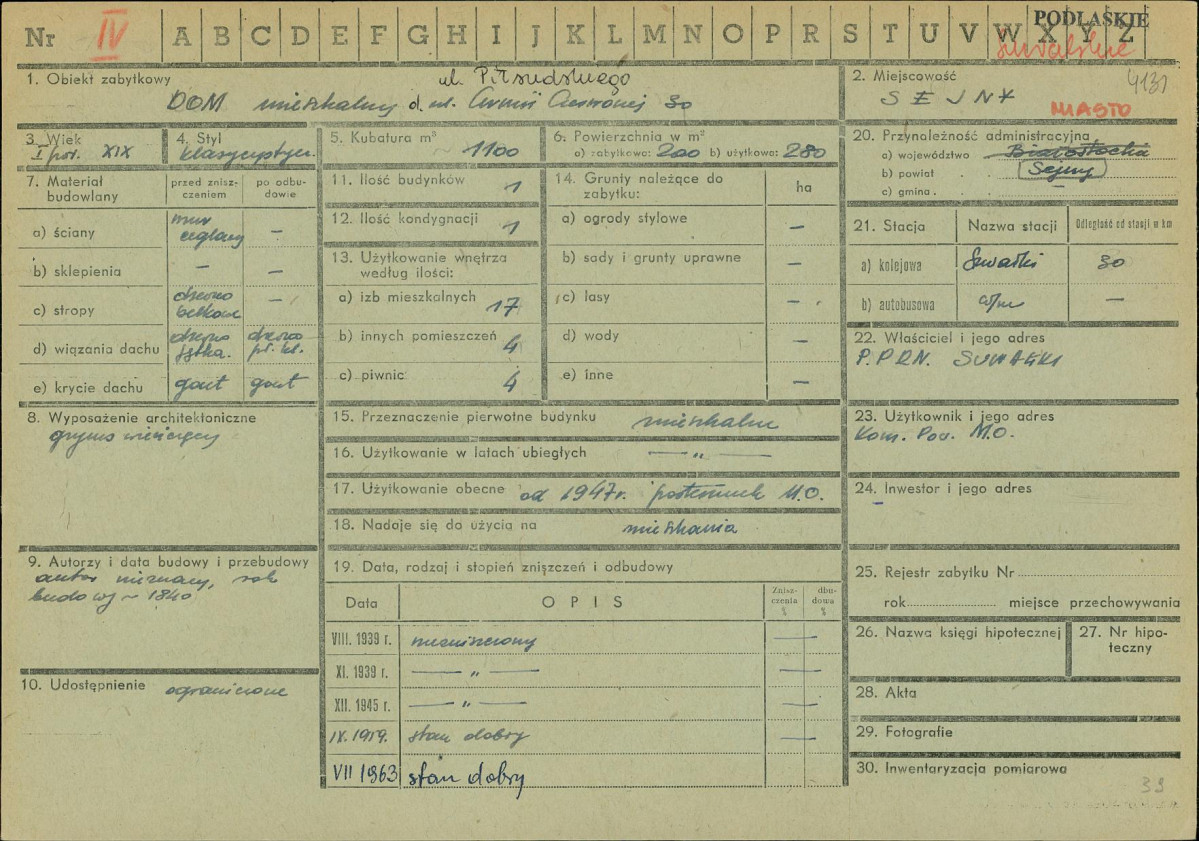 Nr IV A B C D E F G H I J K L M N O P R S T U V W X Y Z
PODLASKIE
suwalskie
1. Obiekt zabytkowy
ul. Piłsudskiego
DOM mieszkalny ul. Armii Czerwonej 30
2. Miejscowość 4131
SEJNY
MIASTO
3. Wiek
I poł. XIX
4. Styl
klasycystycz.
5. Kubatura m³
~ 1100
6. Powierzchnia w m²
a) zabytkowa: 200 b) użytkowa: 280
20. Przynależność administracyjna
a) województwo Białostockie
b) powiat . . Sejny
c) gmina . . —
7. Materiał budowlany
przed znisz-
czeniem
po odbu-
dowie
a) ściany mur ceglany —
b) sklepienia — —
c) stropy drewno belkowe —
d) wiązania dachu drewno drewno
e) krycie dachu gont gont
11. Ilość budynków 1
12. Ilość kondygnacji 1
13. Użytkowanie wnętrza
według ilości:
a) izb mieszkalnych 17
b) innych pomieszczeń 4
c) piwnic 4
14. Grunty należące do
zabytku: ha
a) ogrody stylowe —
b) sady i grunty uprawne —
c) lasy —
d) wody —
e) inne —
21. Stacja Nazwa stacji Odległość od stacji w km
a) kolejowa Suwałki 30
b) autobusowa w/m —
22. Właściciel i jego adres
P.P.R.N. SUWAŁKI
8. Wyposażenie architektoniczne
gzyms wieńczący
15. Przeznaczenie pierwotne budynku mieszkalne
16. Użytkowanie w latach ubiegłych — „ —
17. Użytkowanie obecne od 1947 r. posterunek M.O.
18. Nadaje się do użycia na mieszkania
23. Użytkownik i jego adres
Kom. Pow. M.O.
24. Inwestor i jego adres
—
9. Autorzy i data budowy i przebudowy
autor nieznany, rok
budowy ~ 1840
10. Udostępnienie ograniczone
19. Data, rodzaj i stopień zniszczeń i odbudowy
Data OPIS Znisz-
czenia
% dbu-
dowa
%
VIII. 1939 r. niezniszczony —
XI. 1939 r. — „ — —
XII. 1945 r. — „ — —
IX. 1959. stan dobry —
VII 1963 stan dobry
25. Rejestr zabytku Nr
rok miejsce przechowywania
26. Nazwa księgi hipotecznej
27. Nr hipo-
teczny
28. Akta
29. Fotografie
30. Inwentaryzacja pomiarowa
39